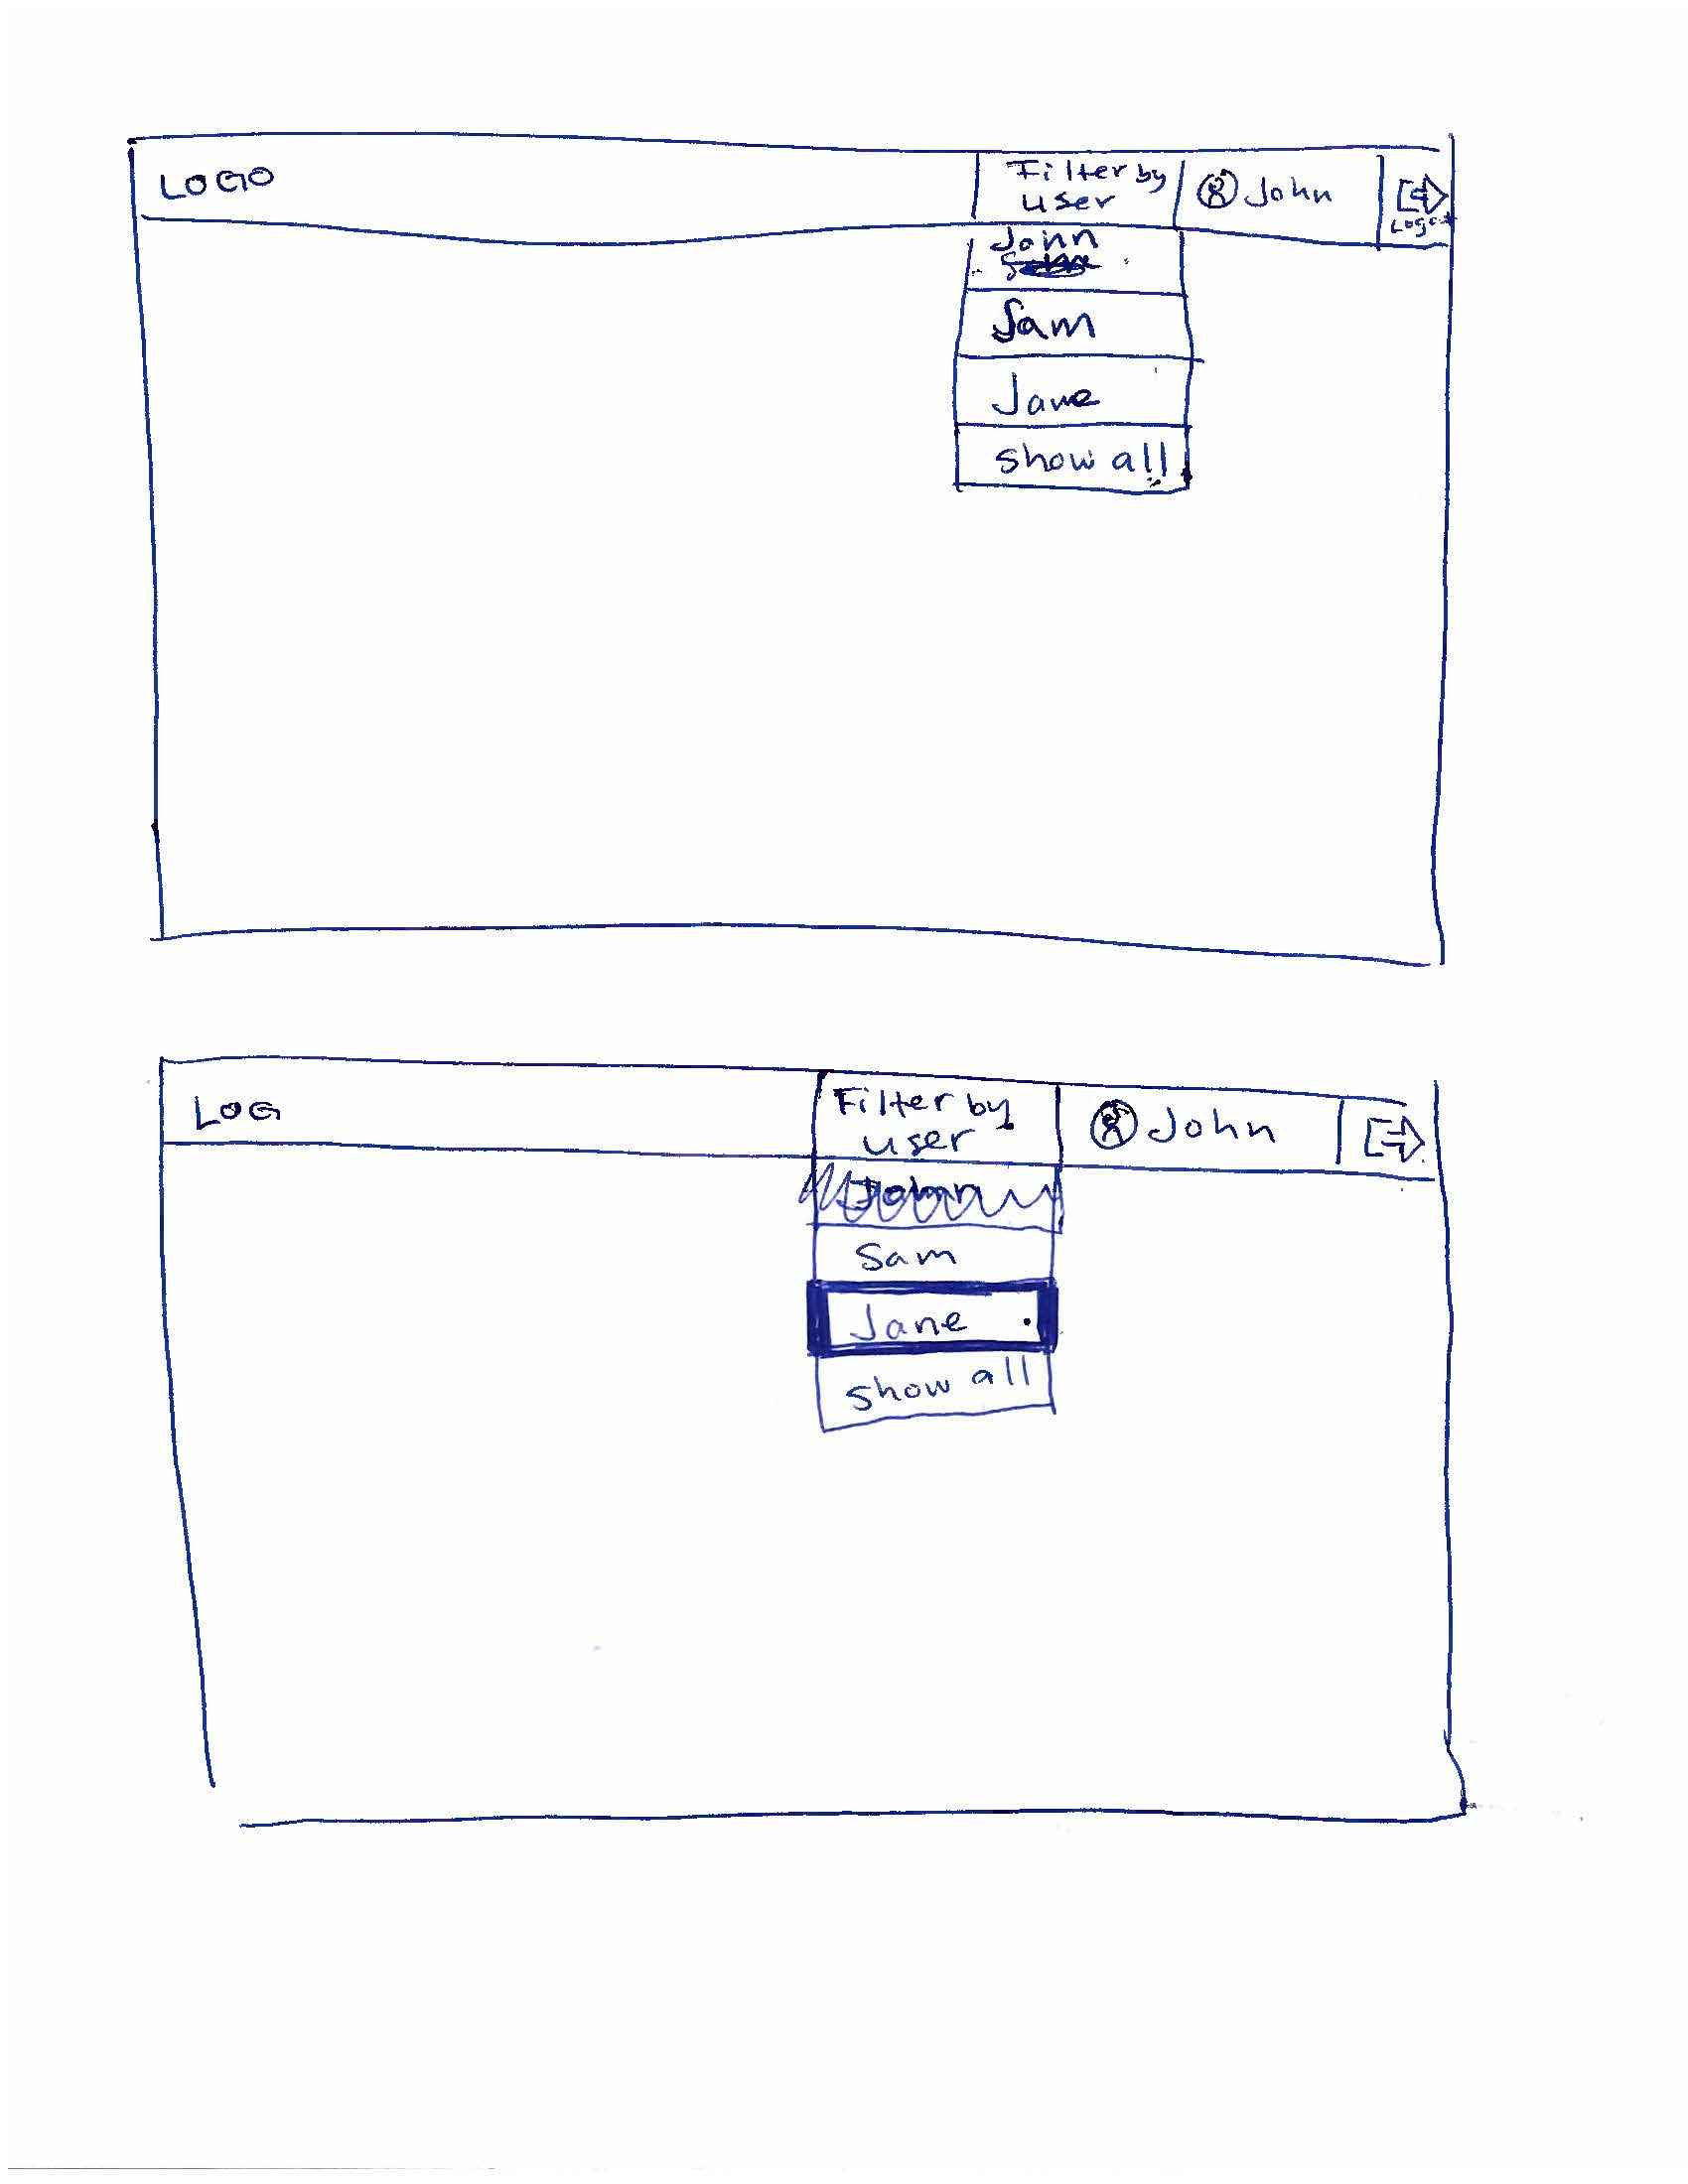 LOGO
Filter by
user
John
Logout
John
Sam
Jane
show all
LOG
Filter by
user
John
John
Sam
Jane
show all